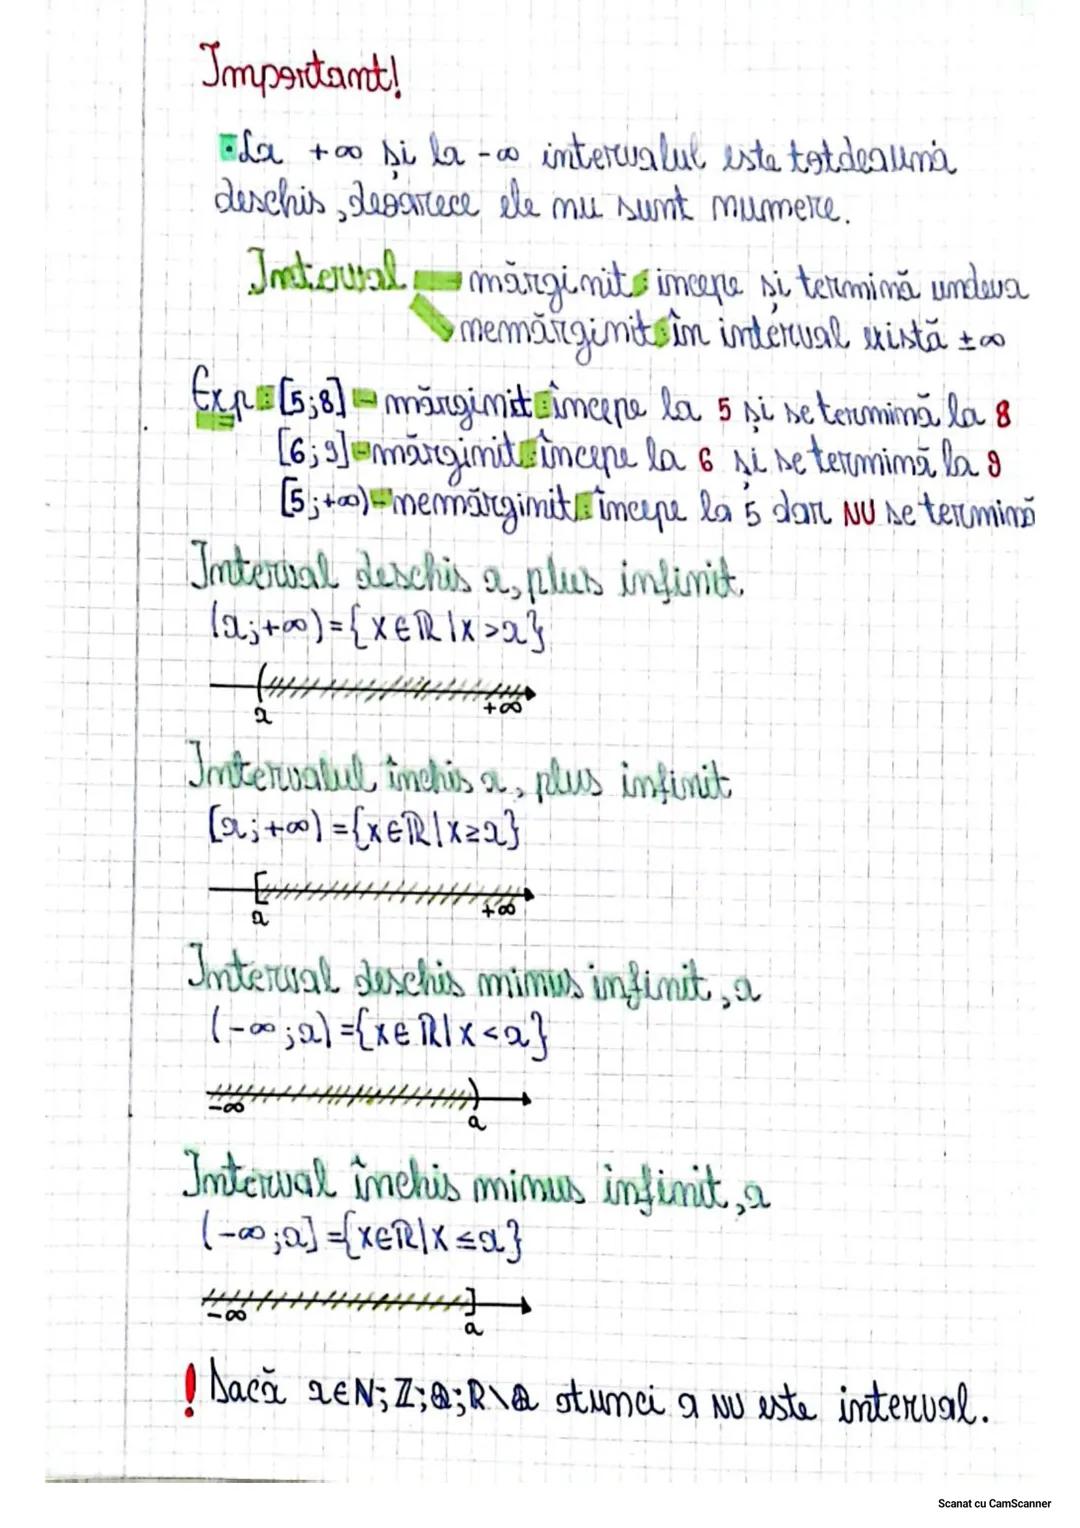 Important!
La +∞ și la -∞ intervalul este totdeauna
deschis, deoarece ele nu sunt numere.
Interval mărginit: incepe si termină undeva
nemărginit: în interval există ±∞
Exp: [5;8] - mărginit: începe la 5 și se termină la 8
[6;9] - mărginit: începe la 6 și se termină la 9
[5;+∞) - nemărginit: începe la 5 dar NU se termină
Interval deschis a, plus infinit
(a;+∞)={x∈ℝ|x>a}
a +∞
Intervalul închis a, plus infinit
[a;+∞)={x∈ℝ|x≥a}
a +∞
Interval deschis minus infinit, a
(-∞;a)={x∈ℝ|x<a}
-∞ a
Interval închis minus infinit, a
(-∞;a]={x∈ℝ|x≤a}
-∞ a
! Dacă a∈N;ℤ;ℚ;R\ℚ atunci a NU este interval.
Scanat cu CamScanner